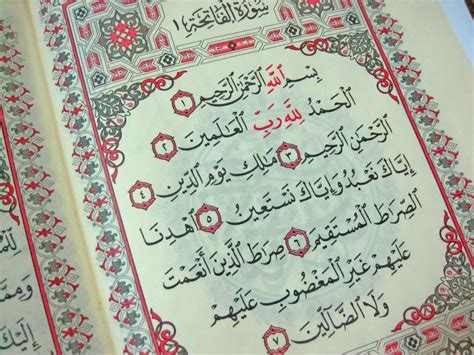 سُورَةُ الفَاتِحَةِ ١
بِسْمِ ٱللَّهِ ٱلرَّحْمَٰنِ ٱلرَّحِيمِ ١
ٱلْحَمْدُ لِلَّهِ رَبِّ ٱلْعَٰلَمِينَ ٢
ٱلرَّحْمَٰنِ ٱلرَّحِيمِ ٣ مَٰلِكِ يَوْمِ ٱلدِّينِ ٤
إِيَّاكَ نَعْبُدُ وَإِيَّاكَ نَسْتَعِينُ ٥ ٱهْدِنَا
ٱلصِّرَٰطَ ٱلْمُسْتَقِيمَ ٦ صِرَٰطَ ٱلَّذِينَ أَنْعَمْتَ
عَلَيْهِمْ غَيْرِ ٱلْمَغْضُوبِ عَلَيْهِمْ
وَلَا ٱلضَّآلِّينَ ٧